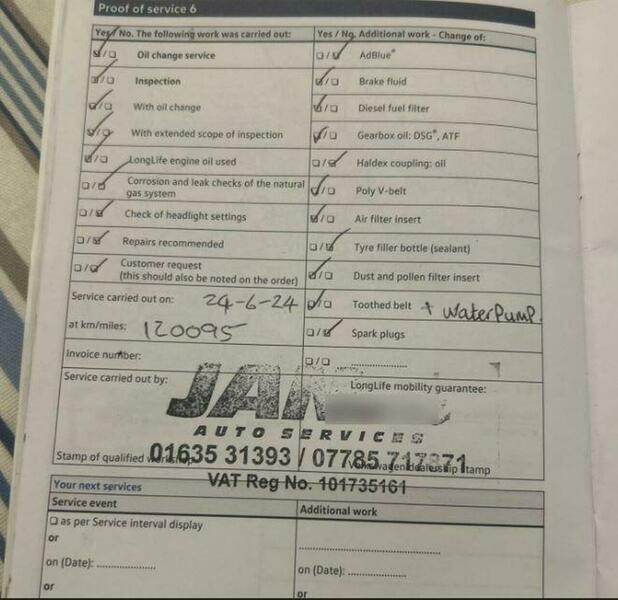 Proof of service 6
Yes / No. The following work was carried out:
☑/☐ Oil change service
☑/☐ Inspection
☑/☐ With oil change
☑/☐ With extended scope of inspection
☑/☐ LongLife engine oil used
☐/☑ Corrosion and leak checks of the natural
gas system
☐/☑ Check of headlight settings
☐/☑ Repairs recommended
☐/☑ Customer request
(this should also be noted on the order)
Service carried out on: 24-6-24
at km/miles: 120095
Invoice number:
Service carried out by:
Yes / No. Additional work - Change of:
☐/☑ AdBlue®
☑/☐ Brake fluid
☑/☐ Diesel fuel filter
☑/☐ Gearbox oil: DSG®, ATF
☐/☑ Haldex coupling: oil
☑/☐ Poly V-belt
☑/☐ Air filter insert
☐/☑ Tyre filler bottle (sealant)
☑/☐ Dust and pollen filter insert
☑/☐ Toothed belt + WaterPump.
☐/☑ Spark plugs
☐/☐ ....................
LongLife mobility guarantee:
AUTO SERVICES
01635 31393 / 07785 717371
VAT Reg No. 101735161
Stamp of qualified workshop
Volkswagen dealership stamp
Your next services
Service event
☐ as per Service interval display
or
on (Date): ..................
or
Additional work
..........................................
on (Date): ..................
or